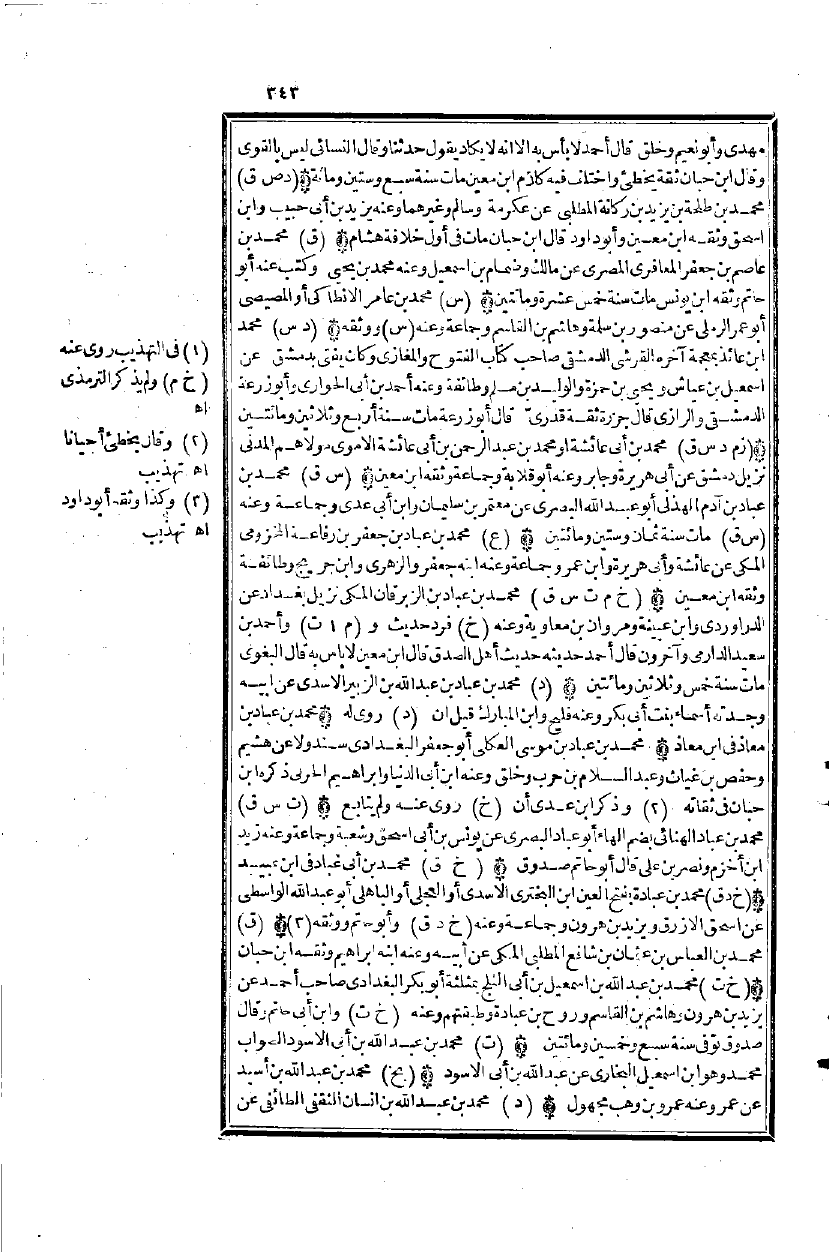 ٣٤٣
مهدى وأبو نعيم وخلق قال أحمد لا بأس به الا انه لا يكاد يقول حدثنا وقال النسائى ليس بالقوى
وقال ابن حبان ثقة يخطئ واختلف فيه كلام ابن معين مات سنة سبع وستين ومائة (د ص ق)
محمد بن طلحة بن يزيد بن ركانة المطلبى عن عكرمة وسالم وغيرهما وعنه يزيد بن أبى حبيب وابن
اسحق وثقه ابن معين وأبو داود قال ابن حبان مات فى أول خلافة هشام (ق) محمد بن
عاصم بن جعفر المعافرى المصرى عن مالك وضمام بن اسمعيل وعنه محمد بن يحيى وكتب عنه أبو
حاتم وثقه ابن يونس مات سنة خمس عشرة ومائتين (س) محمد بن عامر الانطاكى أو المصيصى
أبو عمر الرملى عن منصور بن سلمة وهاشم بن القاسم وجماعة وعنه (س) ووثقه (د س) محمد
ابن عائذ بمعجمة آخره القرشى الدمشقى صاحب كتاب الفتوح والمغازى وكان يفتى بدمشق عن
اسمعيل بن عياش ويحيى بن حمزة والوليد بن مسلم وطائفة وعنه أحمد بن أبى الحوارى وأبو زرعة
الدمشقى والرازى قال جزرة ثقة قدرى قال أبو زرعة مات سنة أربع وثلاثين ومائتين
(زم د س ق) محمد بن أبى عائشة أو محمد بن عبد الرحمن بن أبى عائشة الاموى مولاهم المدنى
نزيل دمشق عن أبى هريرة وجابر وعنه أبو قلابة وجماعة وثقه ابن معين (س ق) محمد بن
عباد بن آدم الهذلى أبو عبد الله البصرى عن معتمر بن سليمان وابن أبى عدى وجماعة وعنه
(س ق) مات سنة ثمان وستين ومائتين (ع) محمد بن عباد بن جعفر بن رفاعة المخزومى
المكى عن عائشة وأبى هريرة وابن عمر وجماعة وعنه ابنه جعفر والزهرى وابن جريج وطائفة
وثقه ابن معين (خ م ت س ق) محمد بن عباد بن الزبرقان المكى نزيل بغداد عن
الدراوردى وابن عيينة ومروان بن معاوية وعنه (خ) فرد حديث و (م ١ ت) وأحمد بن
سعيد الدارمى وآخرون قال أحمد حديثه حديث أهل الصدق قال ابن معين لا باس به قال البغوى
مات سنة خمس وثلاثين ومائتين (د) محمد بن عباد بن عبد الله بن الزبير الاسدى عن ابيه
وجدته أسماء بنت أبى بكر وعنه فليح وابن المبارك قيل ان (د) روى له محمد بن عباد بن
معاذ فى ابن معاذ محمد بن عباد بن موسى العكلى أبو جعفر البغدادى سندولا عن هشيم
وحفص بن غياث وعبد السلام بن حرب وخلق وعنه ابن أبى الدنيا وابراهيم الحربى ذكره ابن
حبان فى ثقاته (٢) وذكر ابن عدى أن (خ) روى عنه ولم يتابع (ت س ق)
محمد بن عباد الهنائى بضم الهاء أبو عباد البصرى عن يونس بن أبى اسحق وشعبة وجماعة وعنه زيد
ابن أخزم ونصر بن على قال أبو حاتم صدوق (خ ق) محمد بن أبى عباد فى ابن عبيد
(خ د ق) محمد بن عبادة بفتح العين ابن البخترى الاسدى أو العجلى أو الباهلى أبو عبد الله الواسطى
عن اسحق الازرق ويزيد بن هرون وجماعة وعنه (خ د ق) وأبو حاتم ووثقه (٣) (ق)
محمد بن العباس بن عثمان بن شافع المطلبى المكى عن أبيه وعنه ابنه ابراهيم وثقه ابن حبان
(خ ت) محمد بن عبد الله بن اسمعيل بن أبى الثلج بمثلثة أبو بكر البغدادى صاحب أحمد عن
يزيد بن هرون وهاشم بن القاسم وروح بن عبادة وطبقتهم وعنه (خ ت) وابن أبى حاتم وقال
صدوق توفى سنة سبع وخمسين ومائتين (ت) محمد بن عبد الله بن أبى الاسود الصواب
محمد وهو ابن اسمعيل البخارى عن عبد الله بن أبى الاسود (بخ) محمد بن عبد الله بن أسيد
عن عمر وعنه عمرو بن وهب مجهول (د) محمد بن عبد الله بن انسان الثقفى الطائفى عن
(١) فى التهذيب روى عنه
(خ م) ولم يذكر الترمذى
اه
(٢) وقال يخطئ أحيانا
اه تهذيب
(٣) وكذا وثقه أبو داود
اه تهذيب